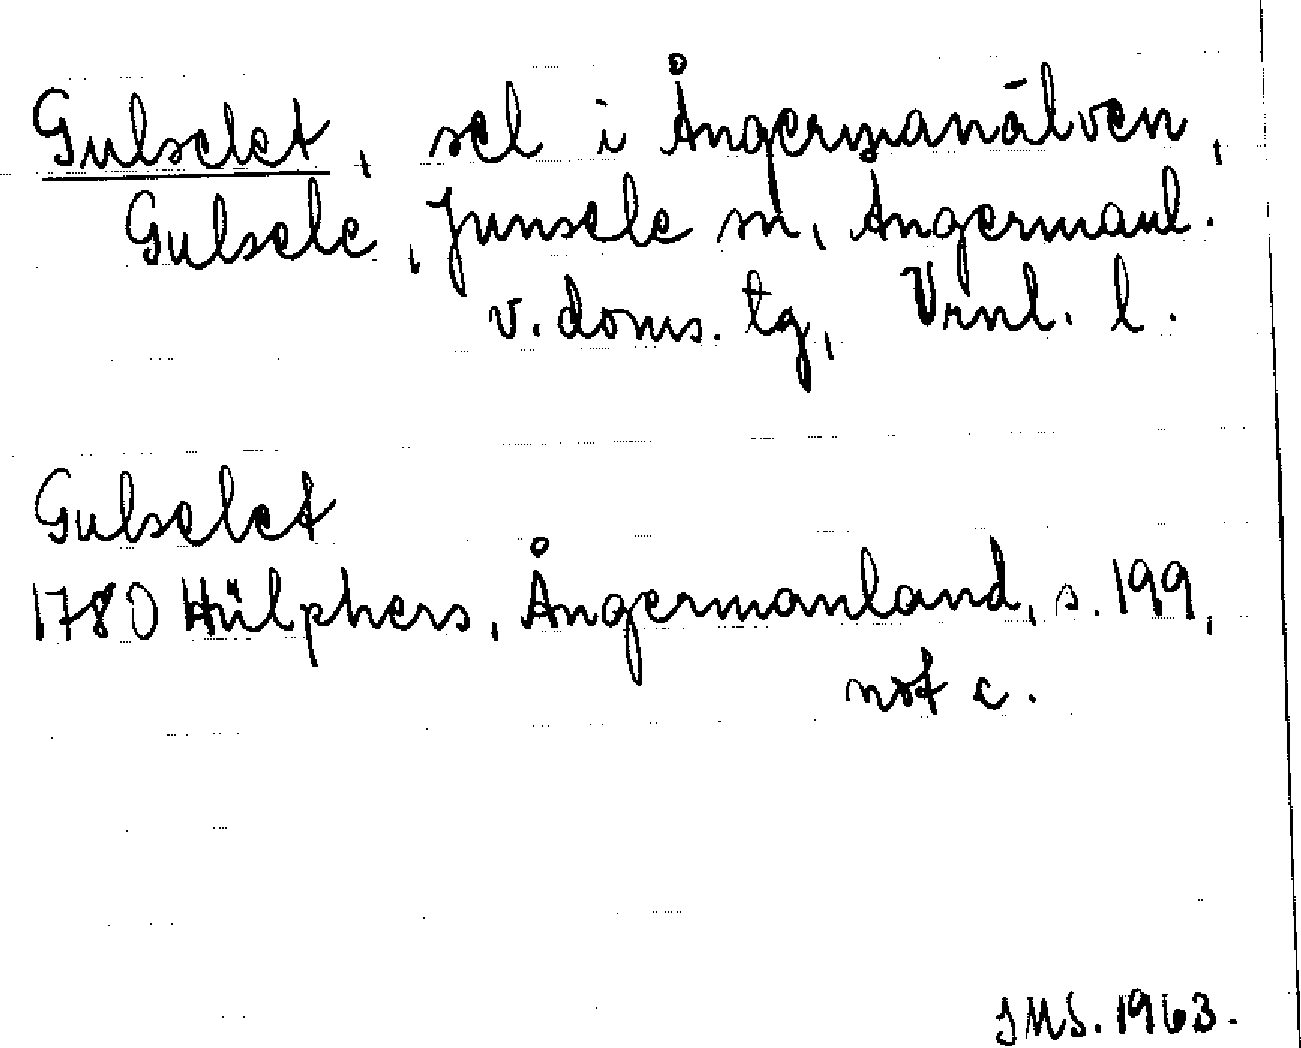 Gulselet, sel i Ångermanälven,
Gulsele, Junsele sn, Ångermanl.
v. doms. tg, Vrnl. l.
Gulselet
1780 Hülphers, Ångermanland, s. 199,
not c.
JMS. 1963.